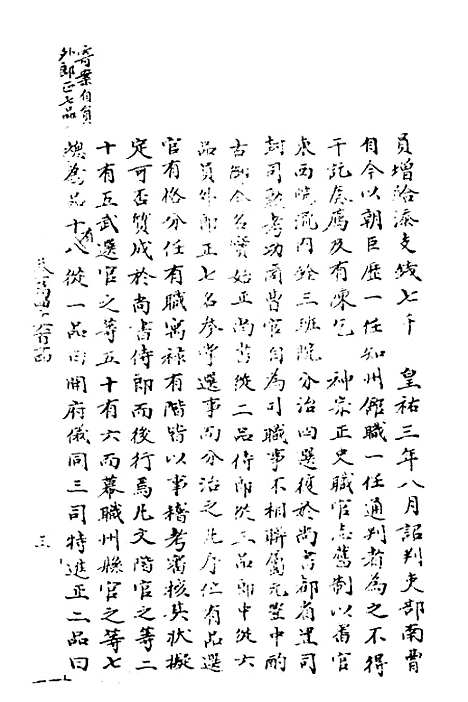 員增給添支錢七千　皇祐三年八月詔判吏部南曹
自今以朝臣歷一任知州館職一任通判者為之不得
干託奏薦及有陳乞　神宗正史職官志舊制以審官
東西院流內銓三班院分治四選復於尚書都省置司
封司勳考功南曹官自為司職事不相聯屬元豐中酌
古御今名實始正尚書從二品侍郎從三品郎中從六
品員外郎正七名參掌選事而分治之凡序位有品選
官有格分任有職寓祿有階皆以事稽考審核具狀擬
定可否質成於尚書侍郎而後行焉凡文階官之等二
十有五武選官之等五十有六而幕職州縣官之等七
總為品十有八從一品曰開府儀同三司特進正二品曰
寄案自員
外郎正七品
三